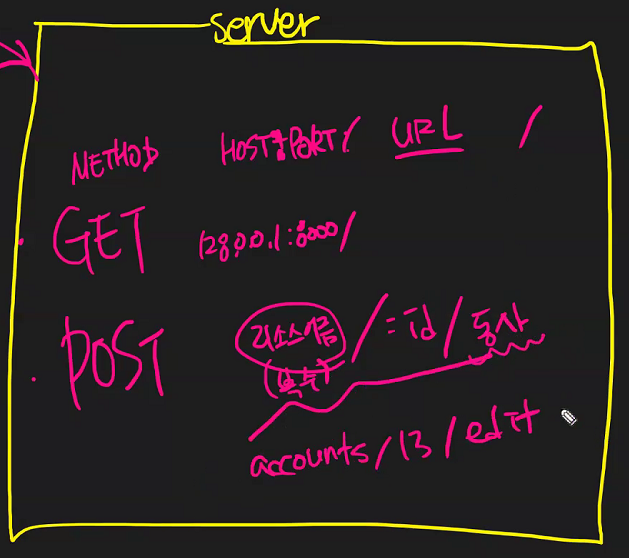 server
METHOD HOST+PORT/ URL /
GET 128.0.0.1:8000/
POST 리소스이름 / :id / 동사
(복수)
accounts/13/edit